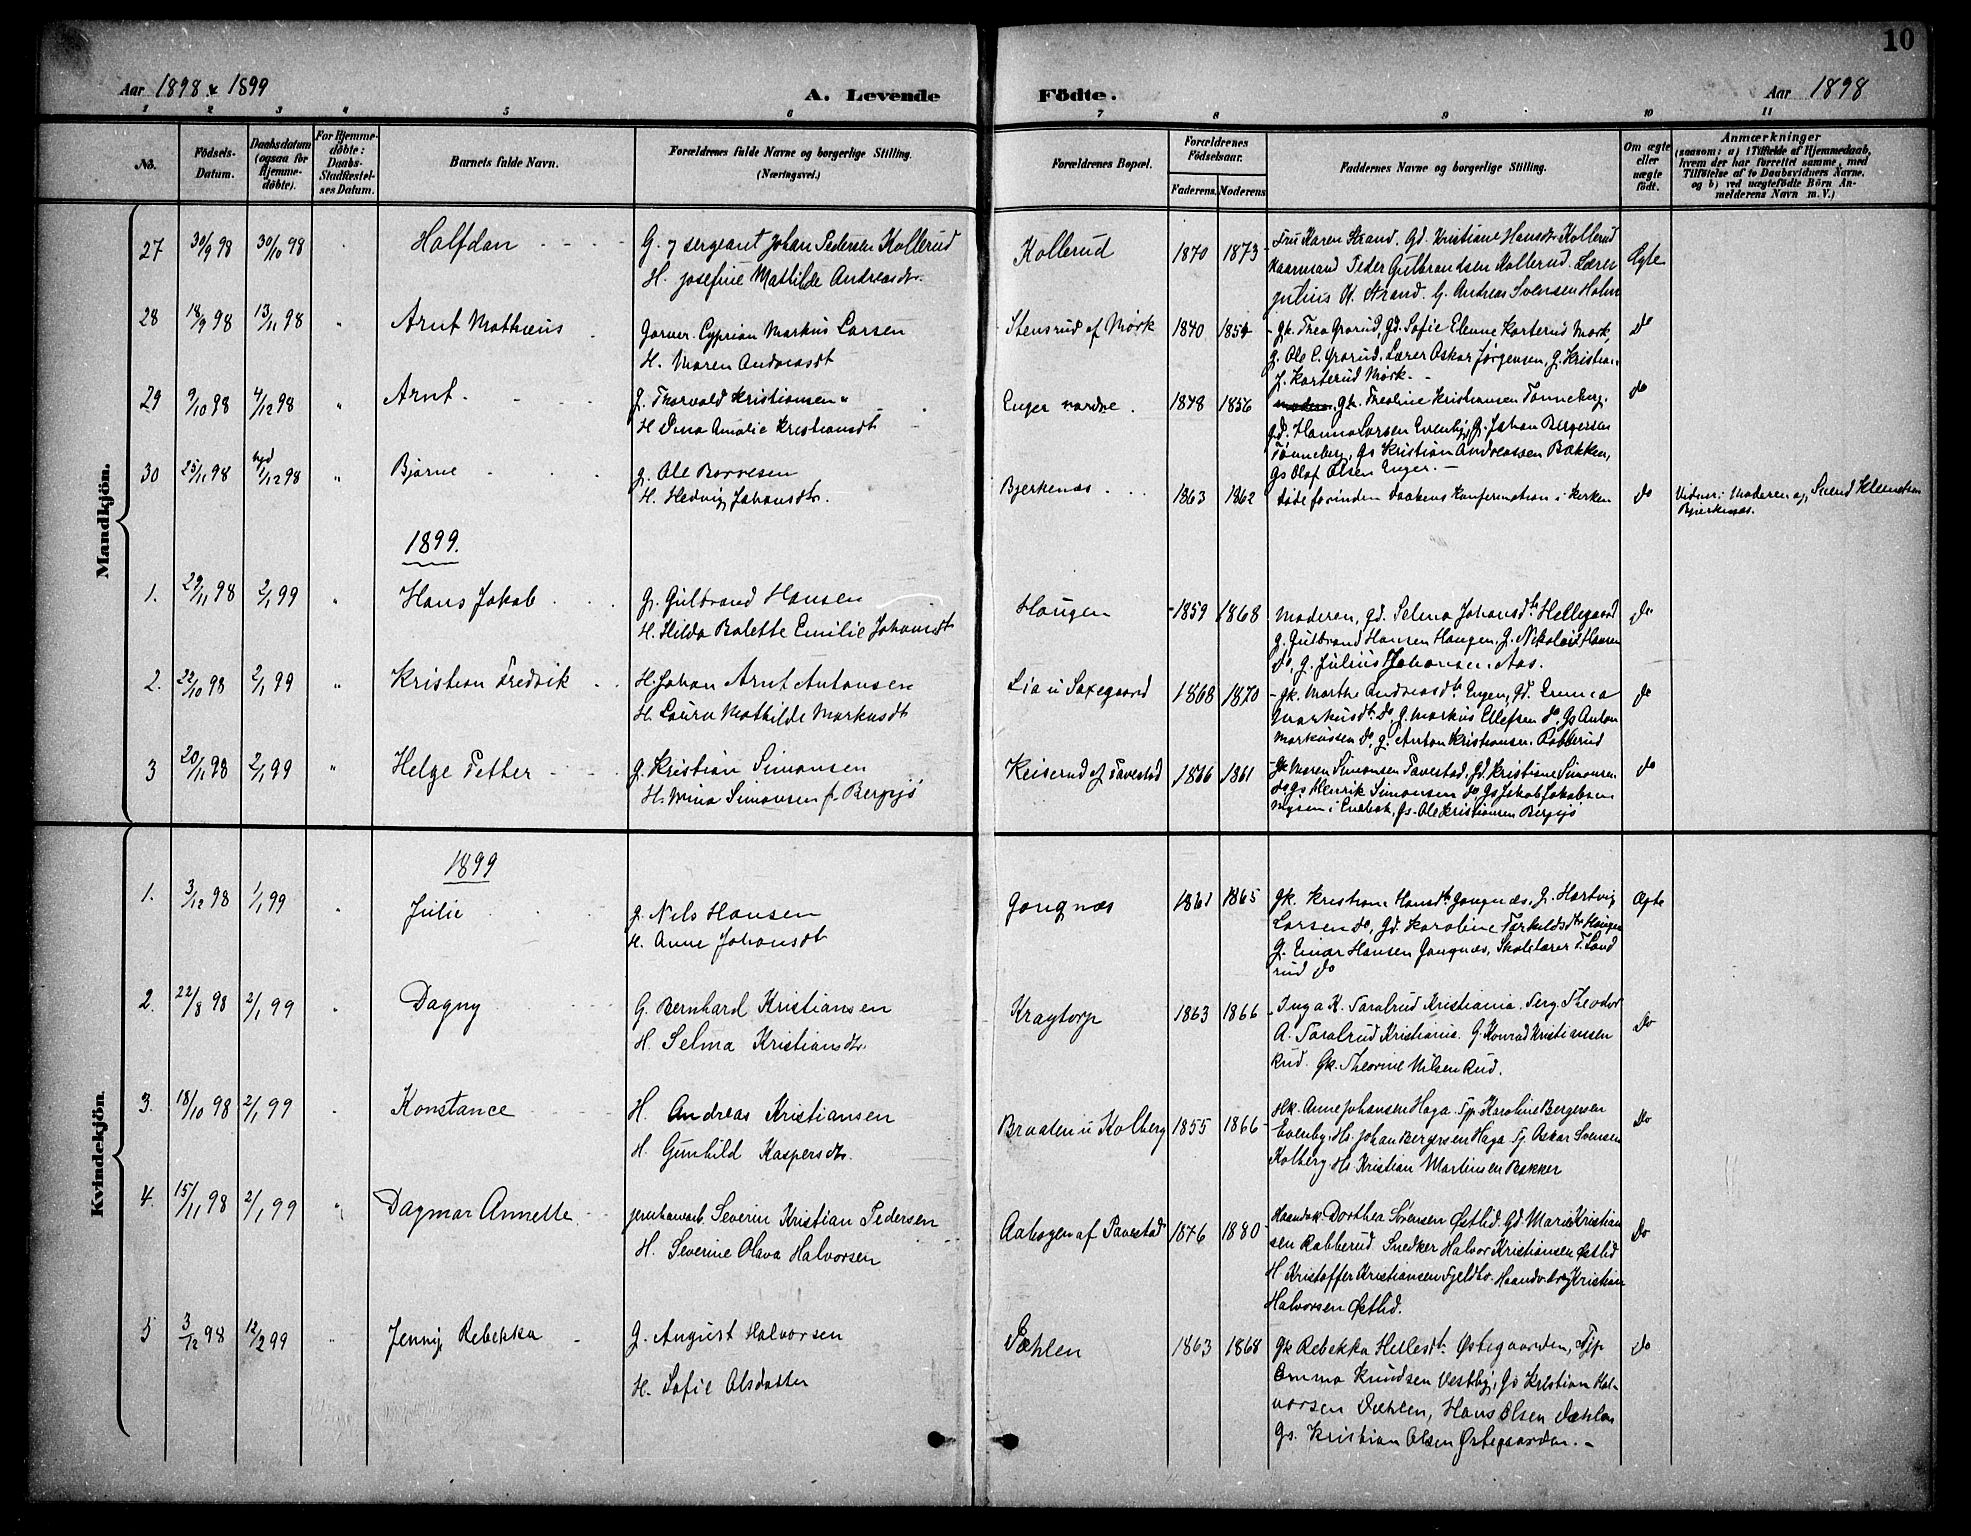 10
Aar 1898 & 1899
A. Levende Födte.
Aar 1898
1 2 3 4 5 6 7 8 9 10 11
No.
Födsels-Datum.
Daabsdatum (ogsaa for Hjemmedöbte).
For Hjemmedöbte: Daabs-Stadfæstelses Datum.
Barnets fulde Navn.
Forældrenes fulde Navne og borgerlige Stilling. (Næringsvei.)
Forældrenes Bopæl.
Forældrenes Födselsaar.
Faderens. Moderens
Faddernes Navne og borgerlige Stilling.
Om ægte eller uægte födt.
Anmærkninger
(saasom: a) i Tilfælde af Hjemmedaab, hvem der har forrettet samme, med Tilföielse af to Daabsvidners Navne, og b) ved uægtefödte Börn Anmelderens Navn m. V.)
Mandkjön.
27 30/9 98 30/10 98 Halfdan
G. y sergeant Johan Pedersen Kollerud
H. Josefine Mathilde Andreasdtr.
Kollerud 1870 1873
Fru Karen Strand. Gd. Kristiane Hansdtr Kollerud
Kaarmand Peder Gulbrandsen Kollerud. Lærer
Julius K. Strand. G. Andreas Svensen Holm
Ægte
28 18/9 98 13/11 98 " Arnt Mathæus
Garver Cyprian Markus Larsen
H. Maren Andreasdt
Stensrud af Mørk 1870 1854
Gk. Thea Grorud, Gd. Sofie Elenne Karterud Mørk,
G. Ole C. Grorud. Lærer Oskar Jørgensen, G. Kristian
J. Karterud Mørk.
do
29 9/10 98 4/12 98 " Arnt
G. Thorvald Kristiansen
H Dina Amalie Kristiansdt
Enger nordre 1848 1856
Gk. Theoline Kristiansen Tønneberg,
Gd. Hanna Larsen Evenby, G. Johan Bergersen
Tønneberg, Gs Kristian Andreassen Bakken,
Gs Olaf Olsen Enger.
do
30 25/11 98 1/12 98 " Bjarne
G. Ole Borresen
H. Hedvig Johansdtr.
Bjerkenæs 1863 1862
døde forinden Daabens Konfirmation i Kirken
do
Vidner: Moderen og Svend Klemetsen
Bjerkenæs.
1899.
1. 29/11 98 2/1 99 " Hans Jakob
G. Gulbrand Hansen
H. Hilda Balette Emilie Johansdt
Haugen 1859 1868
Moderen, Gd. Selma Johansdt Hellegaard
G. Gulbrand Hansen Haugen, G. Nikolai Hansen
do, G. Julius Johansen Aas.
do
2. 22/10 98 2/1 99 " Kristian Fredrik
H. Johan Arnt Antonsen
H. Laura Mathilde Markusdt
Lia u Saxegaard 1868 1870
Gk. Marthe Andreasdt Engen, Gd. Emma
Markusdt do, G. Markus Ellefsen do, Gs Anton
Markussen do, G. Anton Kristiansen Rabberud
do
3 20/11 98 2/1 99 " Helge Petter
G. Kristian Simonsen
H. Mina Simonsen f. Bergsjø
Keiserud af Tavestad 1866 1861
Gk Maren Simonsen Tavestad, Gd. Kristiane Simonsen
do, Gs Henrik Simonsen do Gs Jakob Jakobsen
Mysen i Enebak, Gs. Ole Kristiansen Bergsjø
do
Kvindekjön.
1899
1. 3/12 98 1/1 99 " Julie
G. Nils Hansen
H. Anne Johansdt
Gangnæs 1861 1865
Gk. Kristiane Hansdt Gangnæs, G. Hartvig
Larsen do, Gd. Karoline Torkildsdtr Haugen
G. Einar Hansen Gangnæs, Skolelærer T. Sand
rud do
Ægte
2. 22/8 98 2/1 99 " Dagny
G. Bernhard Kristiansen
H. Selma Kristiansdtr.
Kragtorp 1863 1866
Inga K. Taralrud Kristiania. Serg. Theodor
A. Taralrud Kristiania. G. Konrad Kristiansen
Rud. Gk. Theorine Nilsen Rud.
Do
3. 18/10 98 2/1 99 Konstance
H. Andreas Kristiansen
H. Gunhild Kaspersdtr.
Braaten u Kolberg 1855 1866
Hk. Anne Johansen Haga. Tjp. Karoline Bergersen
Evenby. Hs. Johan Bergersen Haga. Tj. Oskar Svensen
Kolberg. Hs Kristian Martinsen Bakker
Do
4 15/11 98 2/1 99 " Dagmar Annette
Jernbanearb. Severin Kristian Pedersen
H. Severine Olava Halvorsen
Aabogen af Tavestad 1876 1880
Haandvk. Dorthea Sørensen Østlid. Gd. Marie Kristian
sen Rabberud Snedker Halvor Kristiansen Østlid
H Kristoffer Kristiansen Fjeldbo. Haandv.dreng Kristian
Halvorsen Østlid.
Do
5 3/12 98 12/2 99 " Jenny Rebekka
G. August Halvorsen
H. Sofie Olsdatter
Dæhlen 1863 1868
Gk Rebekka Hellesdt. Østegaarden, Tjp
Emma Knudsen Vestby, Gs Kristian Hal-
vorsen Dæhlen, Hans Olsen Dæhlen
Gs. Kristian Olsen Østegaarden.
do